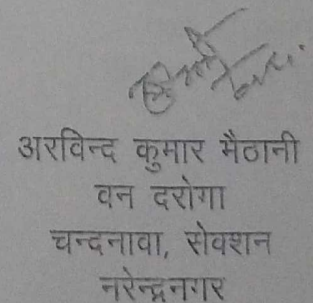 अरविन्द कुमार मैठानी
वन दरोगा
चन्दनावा, सेक्शन
नरेन्द्रनगर